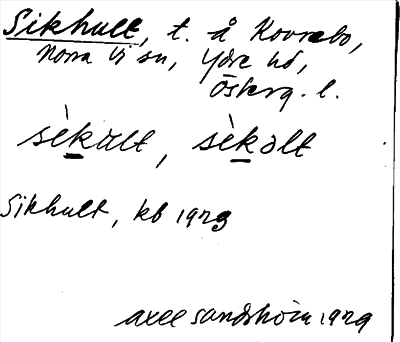 Sikhult, t. å Kovrebo,
Norra Vi sn, Ydre hd,
Österg. l.
sèkult, sèkolt
Sikhult, kb 1929
Axel Sandholm 1929